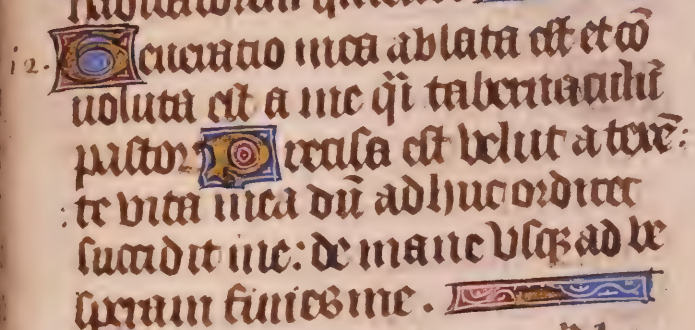 12. Generatio mea ablata est et cō
uoluta est a me q̄i tabernaculū
pastoꝝ Precisa est velut a texē:
:te vita mea dū adhuc ordirer
succidit me: de mane vsqꝫ ad ve
speram finies me.